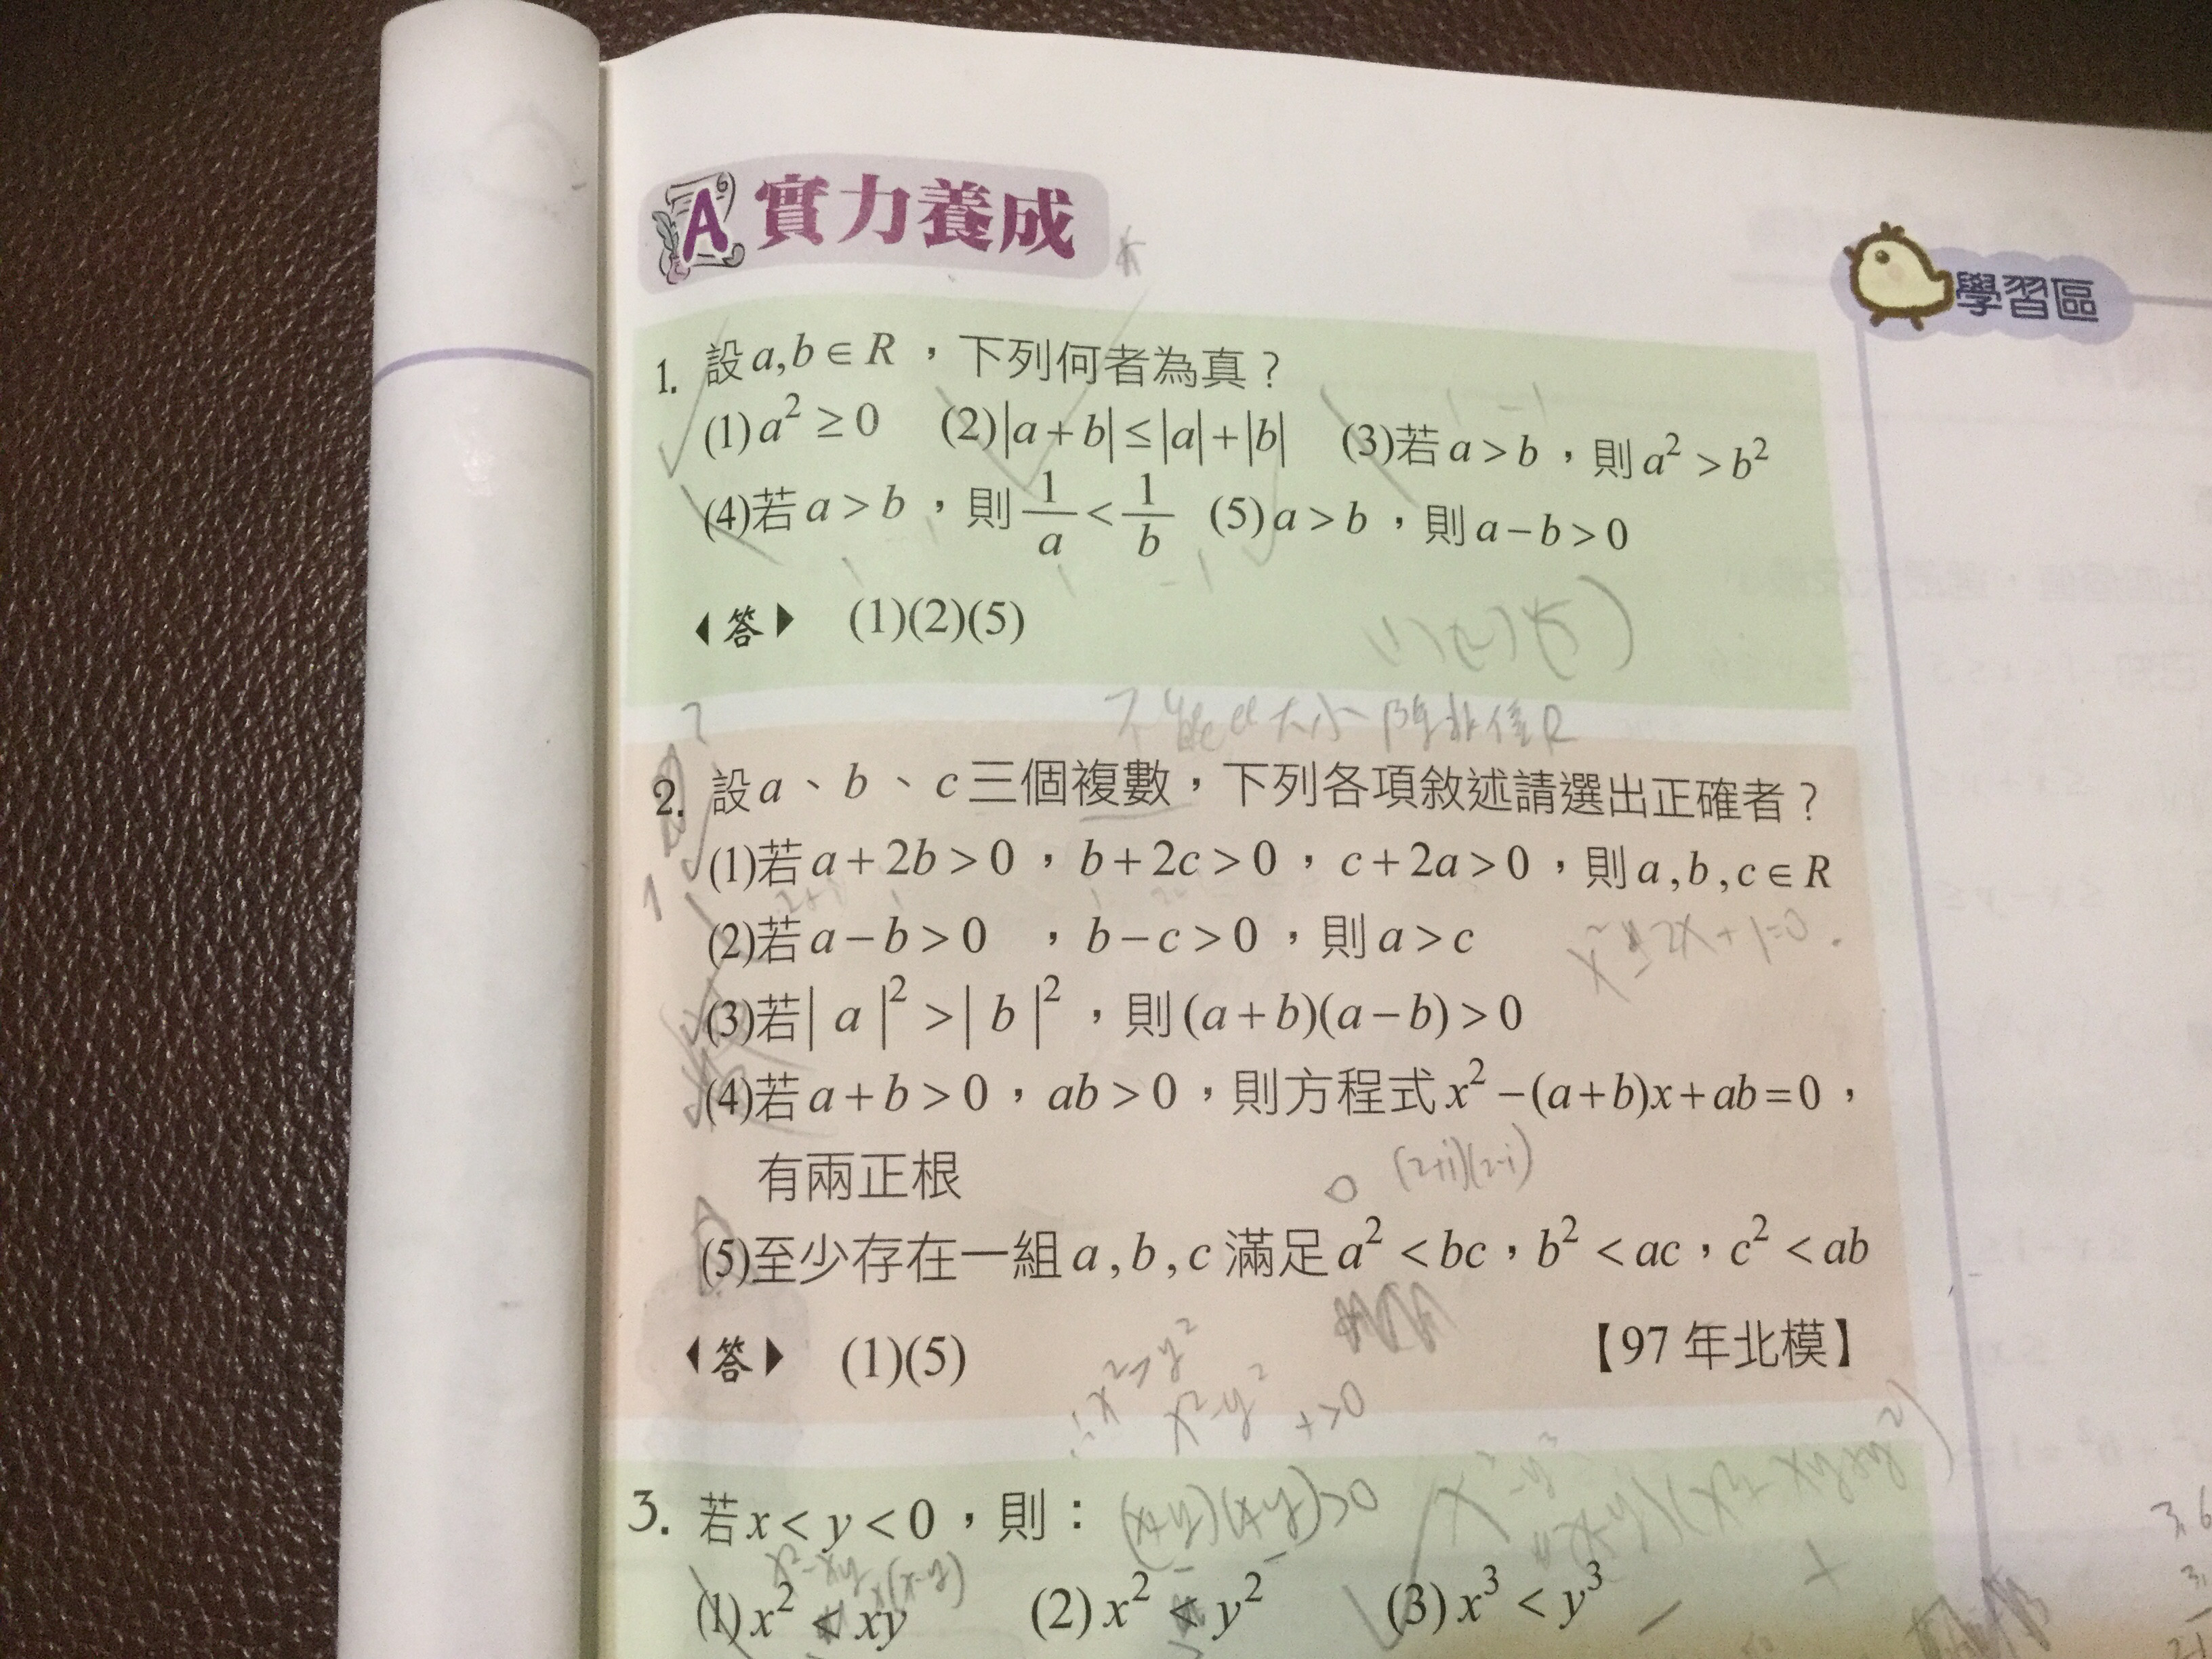 A 實力養成
學習區
1. 設 a,b ∈ R ，下列何者為真？
(1) a² ≥ 0 (2) |a+b| ≤ |a|+|b| (3)若 a > b ，則 a² > b²
(4)若 a > b ，則 1/a < 1/b (5) a > b ，則 a−b > 0
◀答▶ (1)(2)(5)
不能比大小 除非僅R
2. 設 a 、 b 、 c 三個複數，下列各項敘述請選出正確者？
(1)若 a+2b > 0 ， b+2c > 0 ， c+2a > 0 ，則 a,b,c ∈ R
(2)若 a−b > 0 ， b−c > 0 ，則 a > c
(3)若| a |² > | b |² ，則 (a+b)(a−b) > 0
(4)若 a+b > 0 ， ab > 0 ，則方程式 x²−(a+b)x+ab=0 ，
有兩正根
(2+i)(2-i)
(5)至少存在一組 a,b,c 滿足 a² < bc ， b² < ac ， c² < ab
◀答▶ (1)(5) 【97 年北模】
3. 若 x < y < 0 ，則：
(1) x² < xy (2) x² < y² (3) x³ < y³